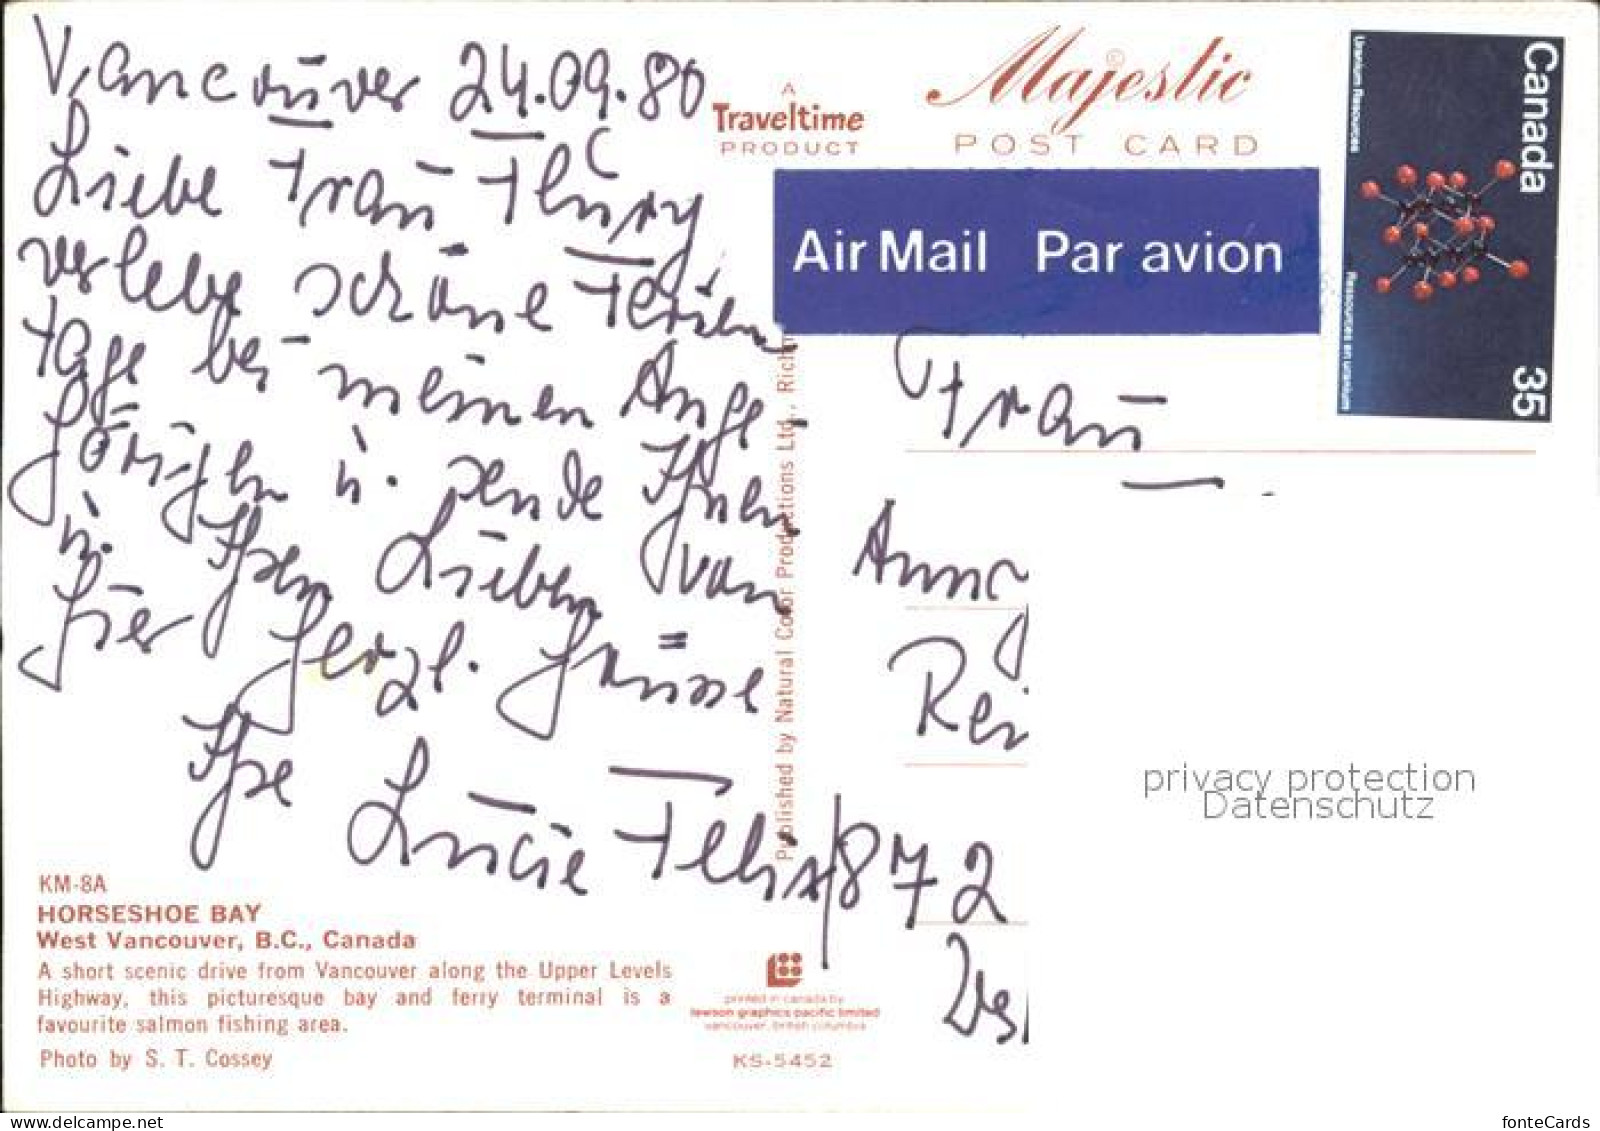 Vancouver 24.09.80
Liebe Frau Flury
verlebe schöne Ferien
tage bei meinen Ange-
hörigen u. sende Ihnen
u. Ihren Lieben von
hier herzl. Grüsse
Ihre Lucie Felix
KM-8A
HORSESHOE BAY
West Vancouver, B.C., Canada
A short scenic drive from Vancouver along the Upper Levels
Highway, this picturesque bay and ferry terminal is a
favourite salmon fishing area.
Photo by S. T. Cossey
A
Traveltime
PRODUCT
Published by Natural Color Productions Ltd., Rich
printed in canada by
lawson graphics pacific limited
vancouver, british columbia
KS-5452
Majestic
POST CARD
Air Mail Par avion
Canada
35
Uranium Resources
Ressources en uranium
Frau
Rei
872
privacy protection
Datenschutz
www.ansichtskarten-center.de
fonteCards